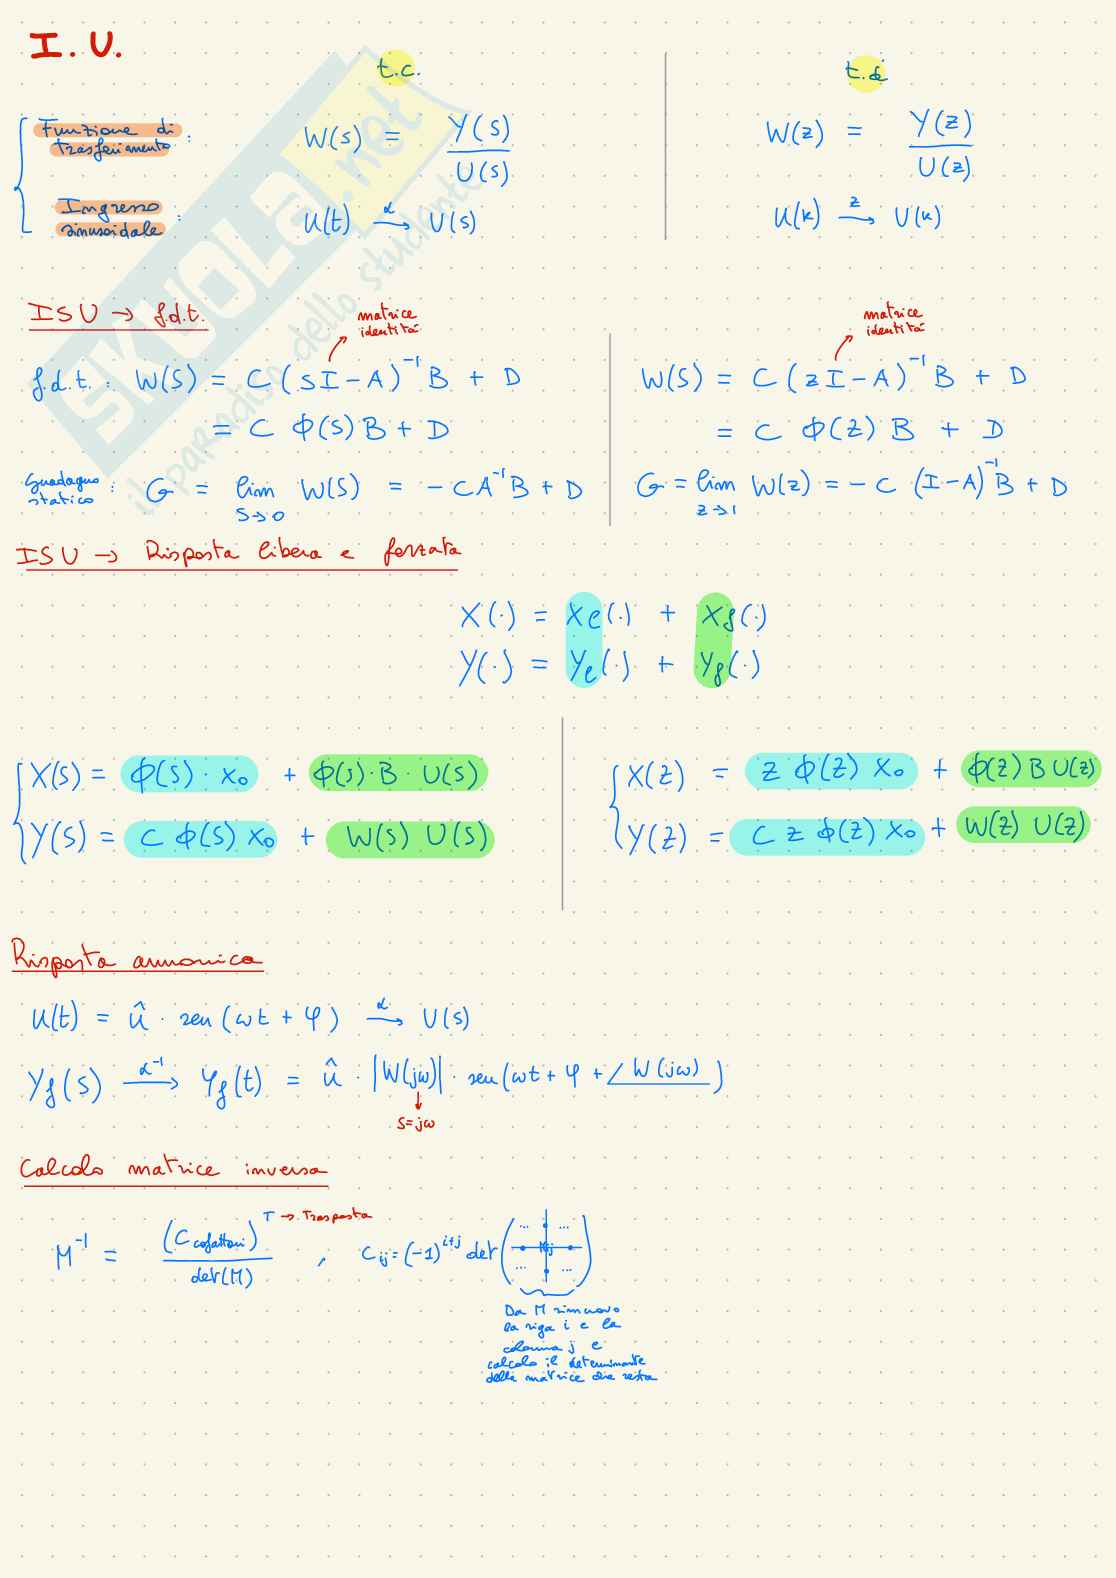 I. U.
t.c.
t.d.
Funzione di trasferimento :
W(s) = Y(s) / U(s)
W(z) = Y(z) / U(z)
Ingresso sinusoidale :
u(t) →ℒ U(s)
u(k) →z U(k)
ISU → f.d.t.
matrice identità
matrice identità
f.d.t. : W(s) = C (sI - A)⁻¹ B + D
W(s) = C (zI - A)⁻¹ B + D
= C ϕ(s) B + D
= C ϕ(z) B + D
Guadagno statico : G = lim s→0 W(s) = - C A⁻¹ B + D
G = lim z→1 W(z) = - C (I - A)⁻¹ B + D
ISU → Risposta libera e forzata
X(·) = Xe(·) + Xf(·)
Y(·) = Ye(·) + Yf(·)
X(s) = ϕ(s) · X₀ + ϕ(s) · B · U(s)
Y(s) = C ϕ(s) X₀ + W(s) U(s)
X(z) = z ϕ(z) X₀ + ϕ(z) B U(z)
Y(z) = C z ϕ(z) X₀ + W(z) U(z)
Risposta armonica
u(t) = û · sen (ωt + φ) →ℒ U(s)
Yf(s) →ℒ⁻¹ Yf(t) = û · |W(jω)| · sen (ωt + φ + ∠W(jω))
s=jω
Calcolo matrice inversa
M⁻¹ = (C cofattori)ᵀ → Trasposta / det(M) , Cij = (-1)^(i+j) det ( ... ... Mij ... ... )
Da M rimuovo
la riga i e la
colonna j e
calcolo il determinante
della matrice che resta
SKUOLA.net
il paradiso dello studente